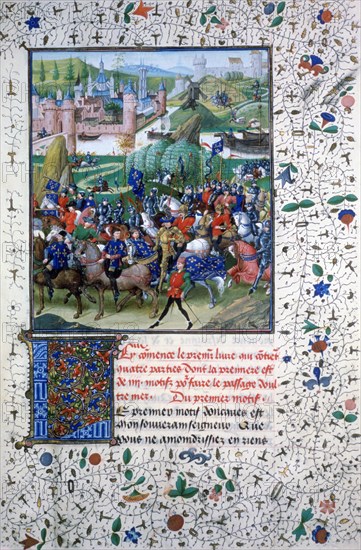 Cy comence le premr liure qui cotiet
quatre parties dont la premiere est
de iiij. motifz po faire le passage doul
tre mer. Du premier motif.
e premier motif doncques est
mon souuerain seigneur Que
vous ne amoindrissiez en riens